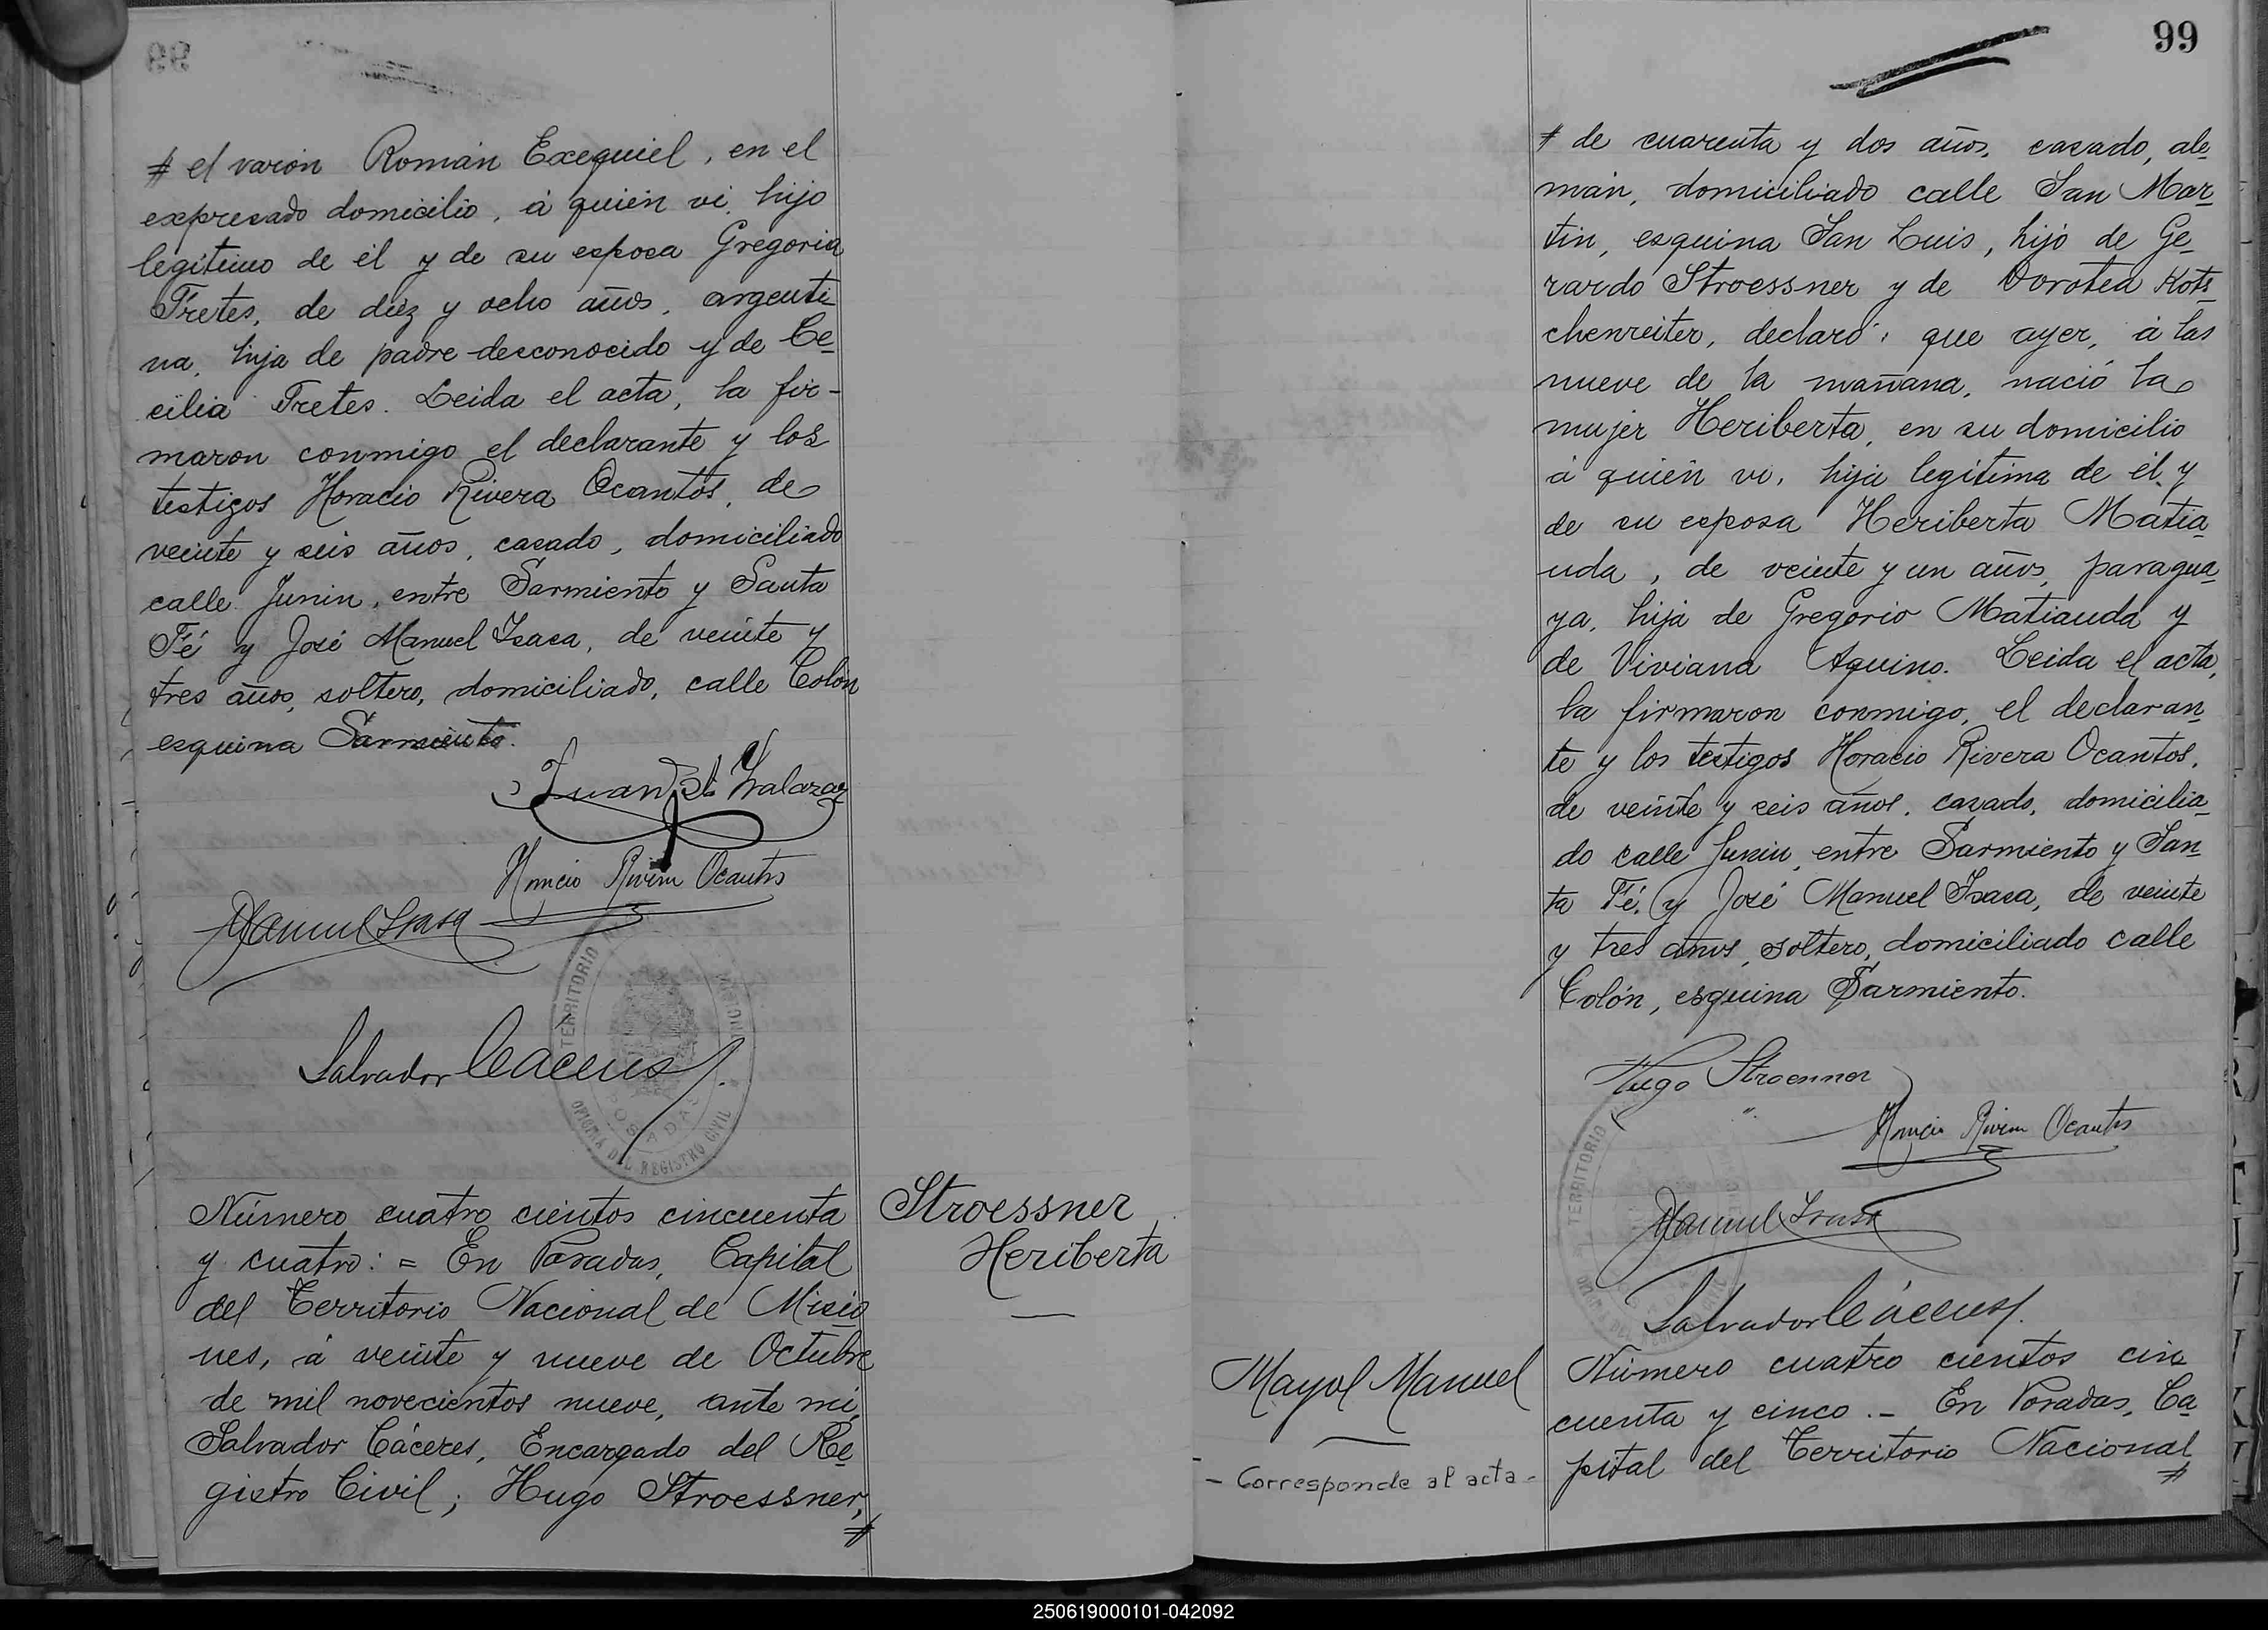 # el varón Román Exequiel, en el
expresado domicilio, á quién vi, hijo
legítimo de él y de su esposa Gregoria
Fretes, de diéz y ocho años, argenti
na, hija de padre desconocido y de Ce-
cilia Fretes. Leida el acta, la fir-
maron conmigo el declarante y los
testigos Horacio Rivera Ocantos, de
veinte y seis años, casado, domiciliado
calle Junin, entre Sarmiento y Santa
Fé y José Manuel Isasa, de veinte y
tres años, soltero, domiciliado, calle Colón
esquina Sarmiento.
Juan Bt
Horacio Rivera Ocantos
Manuel Isasa
Salvador Cáceres
TERRITORIO
POSADAS
OFICINA DEL REGISTRO CIVIL
Número cuatro cientos cincuenta
y cuatro: = En Posadas, Capital
del Territorio Nacional de Misio
nes, á veinte y nueve de Octubre
de mil novecientos nueve, ante mí,
Salvador Cáceres, Encargado del Re-
gistro Civil; Hugo Stroessner,
#
Stroessner
Heriberta
99
# de cuarenta y dos años, casado, ale-
mán, domiciliado calle San Mar-
tin, esquina San Luis, hijo de Ge-
rardo Stroessner y de Dorotea Kots-
chenreiter, declaró: que ayer, á las
nueve de la mañana, nació la
mujer Heriberta, en su domicilio
á quién vi, hija legítima de él y
de su esposa Heriberta Matia-
uda, de veinte y un años, paragua-
ya, hija de Gregorio Matiauda y
de Viviana Aquino. Leida el acta,
la firmaron conmigo, el declaran-
te y los testigos Horacio Rivera Ocantos,
de veinte y seis años, casado, domicilia-
do calle Junin, entre Sarmiento y San-
ta Fé, y José Manuel Isasa, de veinte
y tres años, soltero, domiciliado calle
Colón, esquina Sarmiento.
Hugo Stroessner
Horacio Rivera Ocantos
Manuel Isasa
Salvador Cáceres
TERRITORIO
Mayol Manuel
- Corresponde al acta -
Número cuatro cientos cin
cuenta y cinco.- En Posadas, Ca-
pital del Territorio Nacional
#
250619000101-042092